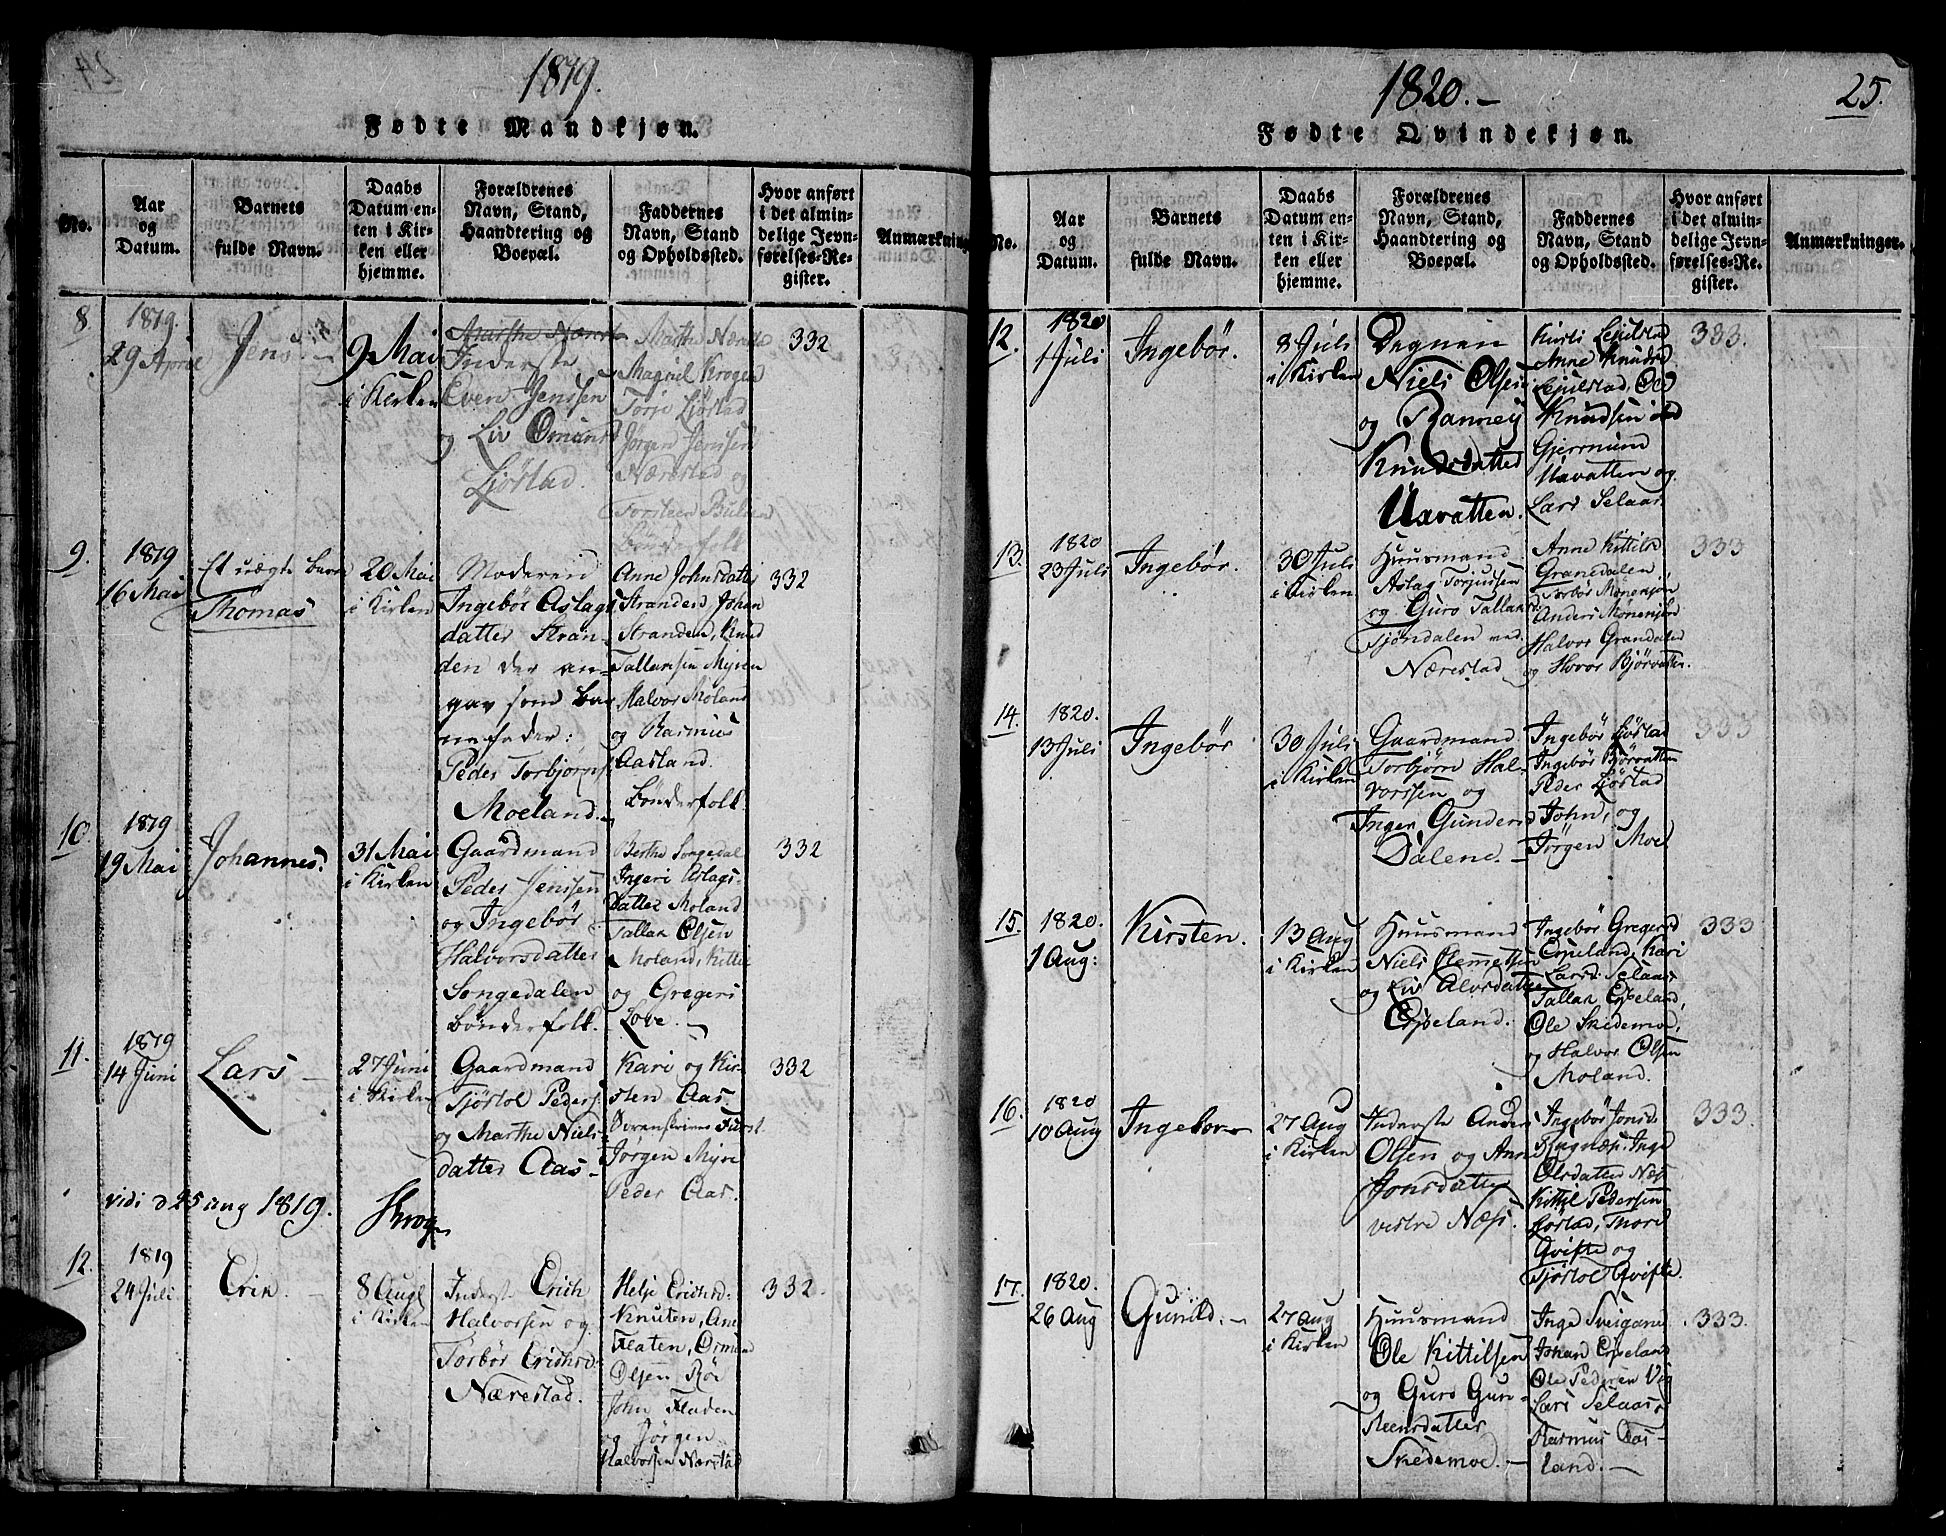 1819.
Fødte Mandkjøn.
No.
Aar
og
Datum.
Barnets
fulde Navn.
Daabs
Datum en-
ten i Kir-
ken eller
hjemme.
Forældrenes
Navn, Stand,
Haandtering og
Boepæl.
Faddernes
Navn, Stand
og Opholdssted.
Hvor anført
i det almin-
delige Jevn-
førelses-Re-
gister.
Anmærkning
8
1819.
29 April
Jens
9 Mai
i Kirken
Marthe Næres
Inderste
Even Jenssen
og Liv Omunds
Ljøstad.
Marthe Næres
Magnil Krogen
Torje Ljøstad
Jørgen Jenssen
Nærestad og
Torsteen
Bønderfolk
332
9.
1819
16 Mai
Et uægte Barn
Thomas
20 Mai
i Kirken
Moderen
Ingebør Aslags
datter Stran-
den der an-
gav som bar
nefader:
Peder Torbjørns
Moeland.
Anne Johnsdatter
Stranden, Johan
Stranden, Knud
Tallansen Myren
Halvor Moland
og Rasmus
Aasland.
Bønderfolk.
332
10.
1819
19 Mai
Johannes.
31 Mai
i Kirken
Gaardmand
Peder Jenssen
og Ingebør
Halvorsdatter
Songedalen
Bønderfolk.
Berthe Songedal
Ingeri Aslags-
datter Moland
Tallak Olsen
Moland, Kittil
og Gregers
Love.
332
11.
1819
14 Juni
Lars
27 Juni
i Kirken
Gaardmand
Tjøstol Peders.
og Marthe Niels-
datter Aas-
Kari og Kir-
sten Aas.
Jørgen Myre
Peder Aas.
332
vidi d 25 aug 1819.
Krog
12.
1819
24 Juli
Erik.
8 Aug
i Kirken
Inderst Erich
Halvorsen og
Torbør Erichsd:
Nærestad.
Helje Erichsd:
Knuten, Ane
Flaten, Ormun
Olsen Røe
John Fladen
og Jørgen
Halvorsen Nærestad
332.
1820.
25.
Fødte Qvindekjøn.
No.
Aar
og
Datum.
Barnets
fulde Navn.
Daabs
Datum en-
ten i Kir-
ken eller
hjemme.
Forældrenes
Navn, Stand,
Haandtering og
Boepæl.
Faddernes
Navn, Stand
og Opholdssted.
Hvor anført
i det almin-
delige Jevn-
førelses-Re-
gister.
Anmærkninger.
12.
1820
1 Juli
Ingebør.
8 Juli
i Kirken
Degnen
Niels Olsen
og Ranney
Knudsdatter
Uavatten.
Anne Knudsd
Knudsen
Gjermund
Uavatten og
Lars Selaas
333.
13.
1820
23 Juli
Ingebør.
30 Juli
i Kirken
Huusmand
Aslag Torjussen
og Guro Tallaks
Tjøndalen ved
Nærestad
Anne Kittilsd
Granedalen
Torbør Mønesjøn
Anders Mønesjøn
Halvor Granedalen
og Hovor Bjørvatten.
333
14.
1820.
13 Juli
Ingebør
30 Juli
i Kirken
Gaardmand
Torbjørn Hal-
vorssen og
Inger Gundersd
Dalene.
Ingebør Ljøstad
Ingebør Bjørvatten
Peder Ljøstad
John, og
Jørgen Moe
333
15.
1820.
1 Aug:
Kirsten.
13 Aug
i Kirken
Huusmand
Niels Clemetsen
og Liv Alvsdatter
Espeland.
Ingebør Gregersd
Espeland, Kari
Larsd: Selaas
Tallak Espeland,
Ole Skedemoe,
og Halvor Olsen
Moland.
333
16.
1820
10 Aug
Ingebor
27 Aug
i Kirken
Inderste Anders
Olsen og Anne
Jonsdatter
vestre Næs.
Ingebør Jonsd:
Inge
Olsdatter Næs
Kittil Pedersen
Ljøstad, Thore
Qvifte og
Tjøstol Qvifte.
333.
17.
1820.
26 Aug
Gunild.
27 Aug
i Kirken
Huusmand
Ole Kittilsen
og Guro Gun-
steensdatter
Skedemoe.
Inge Sveigane
Johan Espeland
Ole Pedersen Vig
Lars Selaas,
Rasmus Aas-
land.
333.